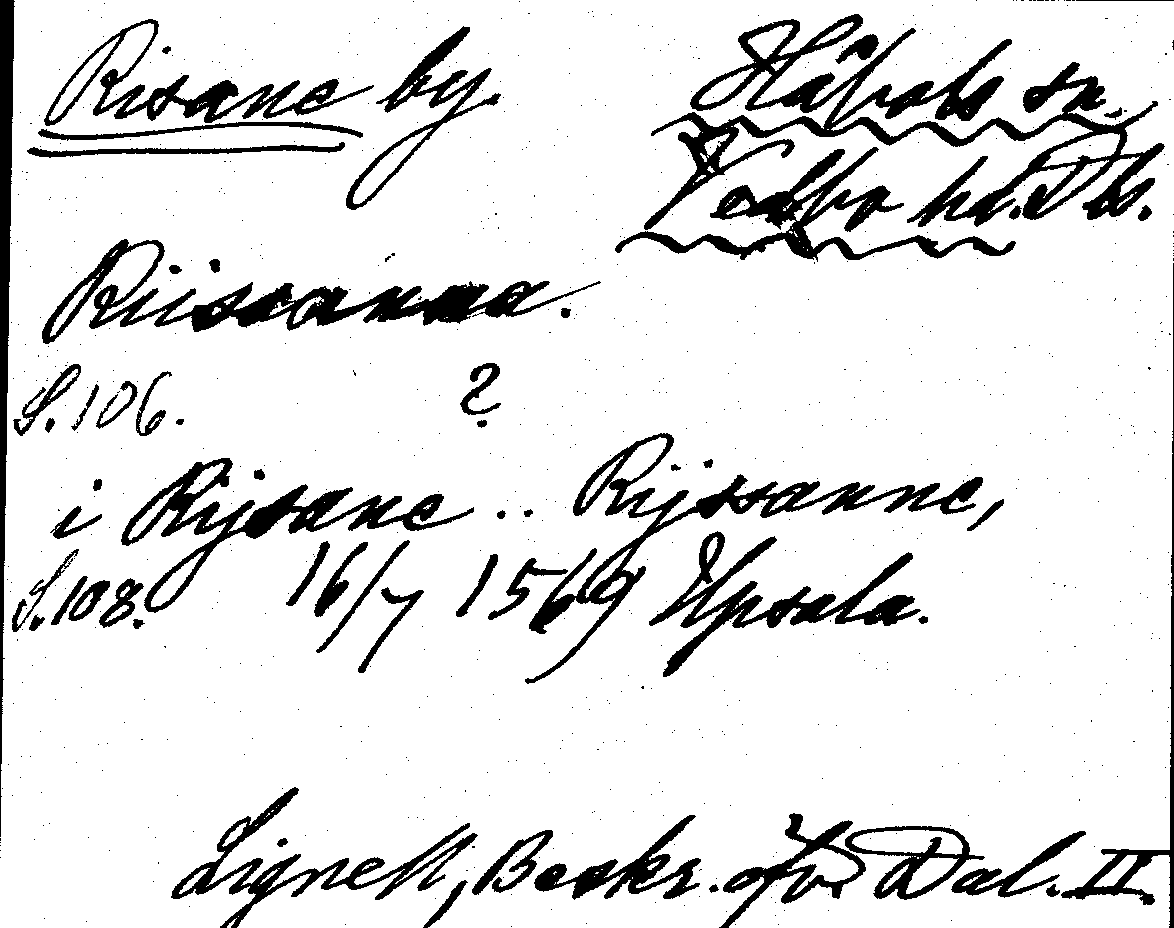 Risane by. Håbols sn.
Vedbo hd. Dls.
Riissanna.
S. 106. ?
i Rijsane .. Rijssanne,
S. 108. 16/7 1569 Upsala.
Lignell, Beskr. öfv. Dal. II.